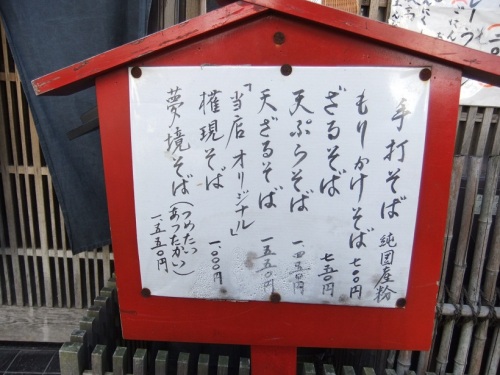 手打そば 純国産粉
もりかけそば 七〇〇円
ざるそば 七五〇円
天ぷらそば 一四五〇円
天ざるそば 一五五〇円
「当店オリジナル」
権現そば 一、〇〇〇円
夢境そば(つめたい あつたかい)一、五五〇円